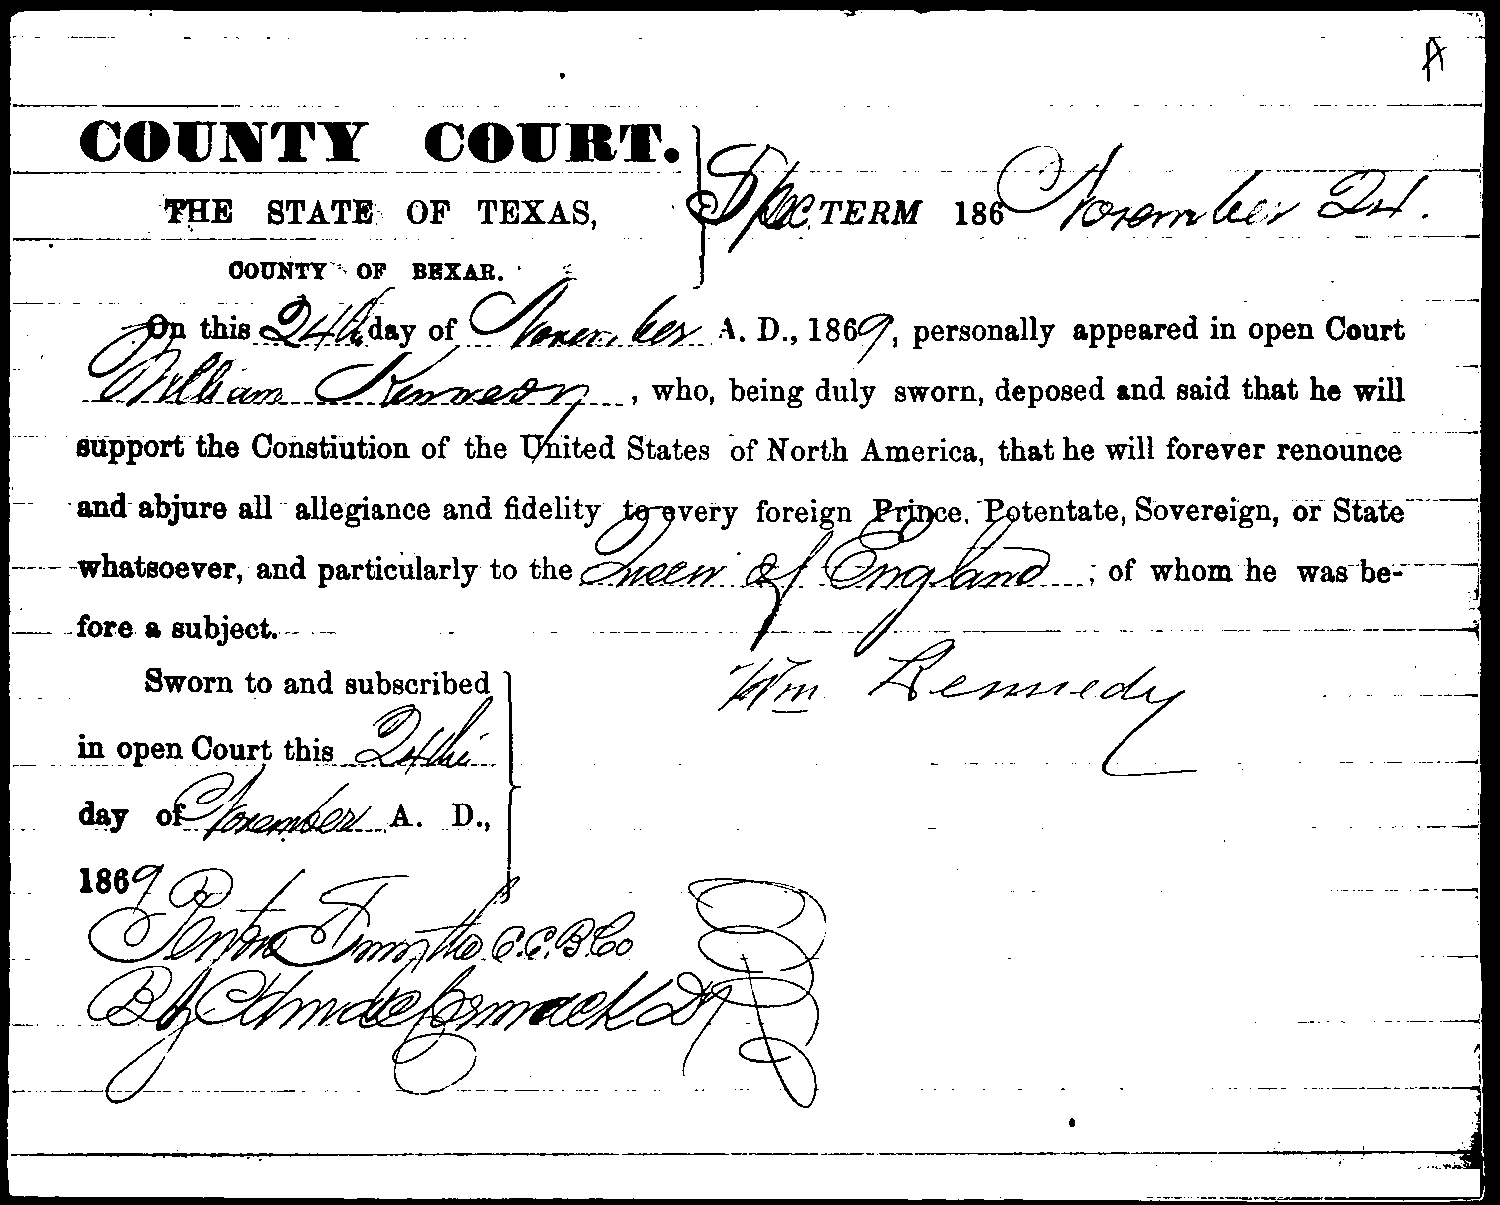 A
COUNTY COURT.
THE STATE OF TEXAS,
COUNTY OF BEXAR.
Spec. TERM 186 November 24.
On this 24th day of November A. D., 1869, personally appeared in open Court
William Kennedy, who, being duly sworn, deposed and said that he will
support the Constiution of the United States of North America, that he will forever renounce
and abjure all allegiance and fidelity to every foreign Prince, Potentate, Sovereign, or State
whatsoever, and particularly to the Queen of England; of whom he was be-
fore a subject.
Wm Kennedy
Sworn to and subscribed
in open Court this 24th
day of November A. D.,
1869
Smythe C.C.B.Co
By Dy